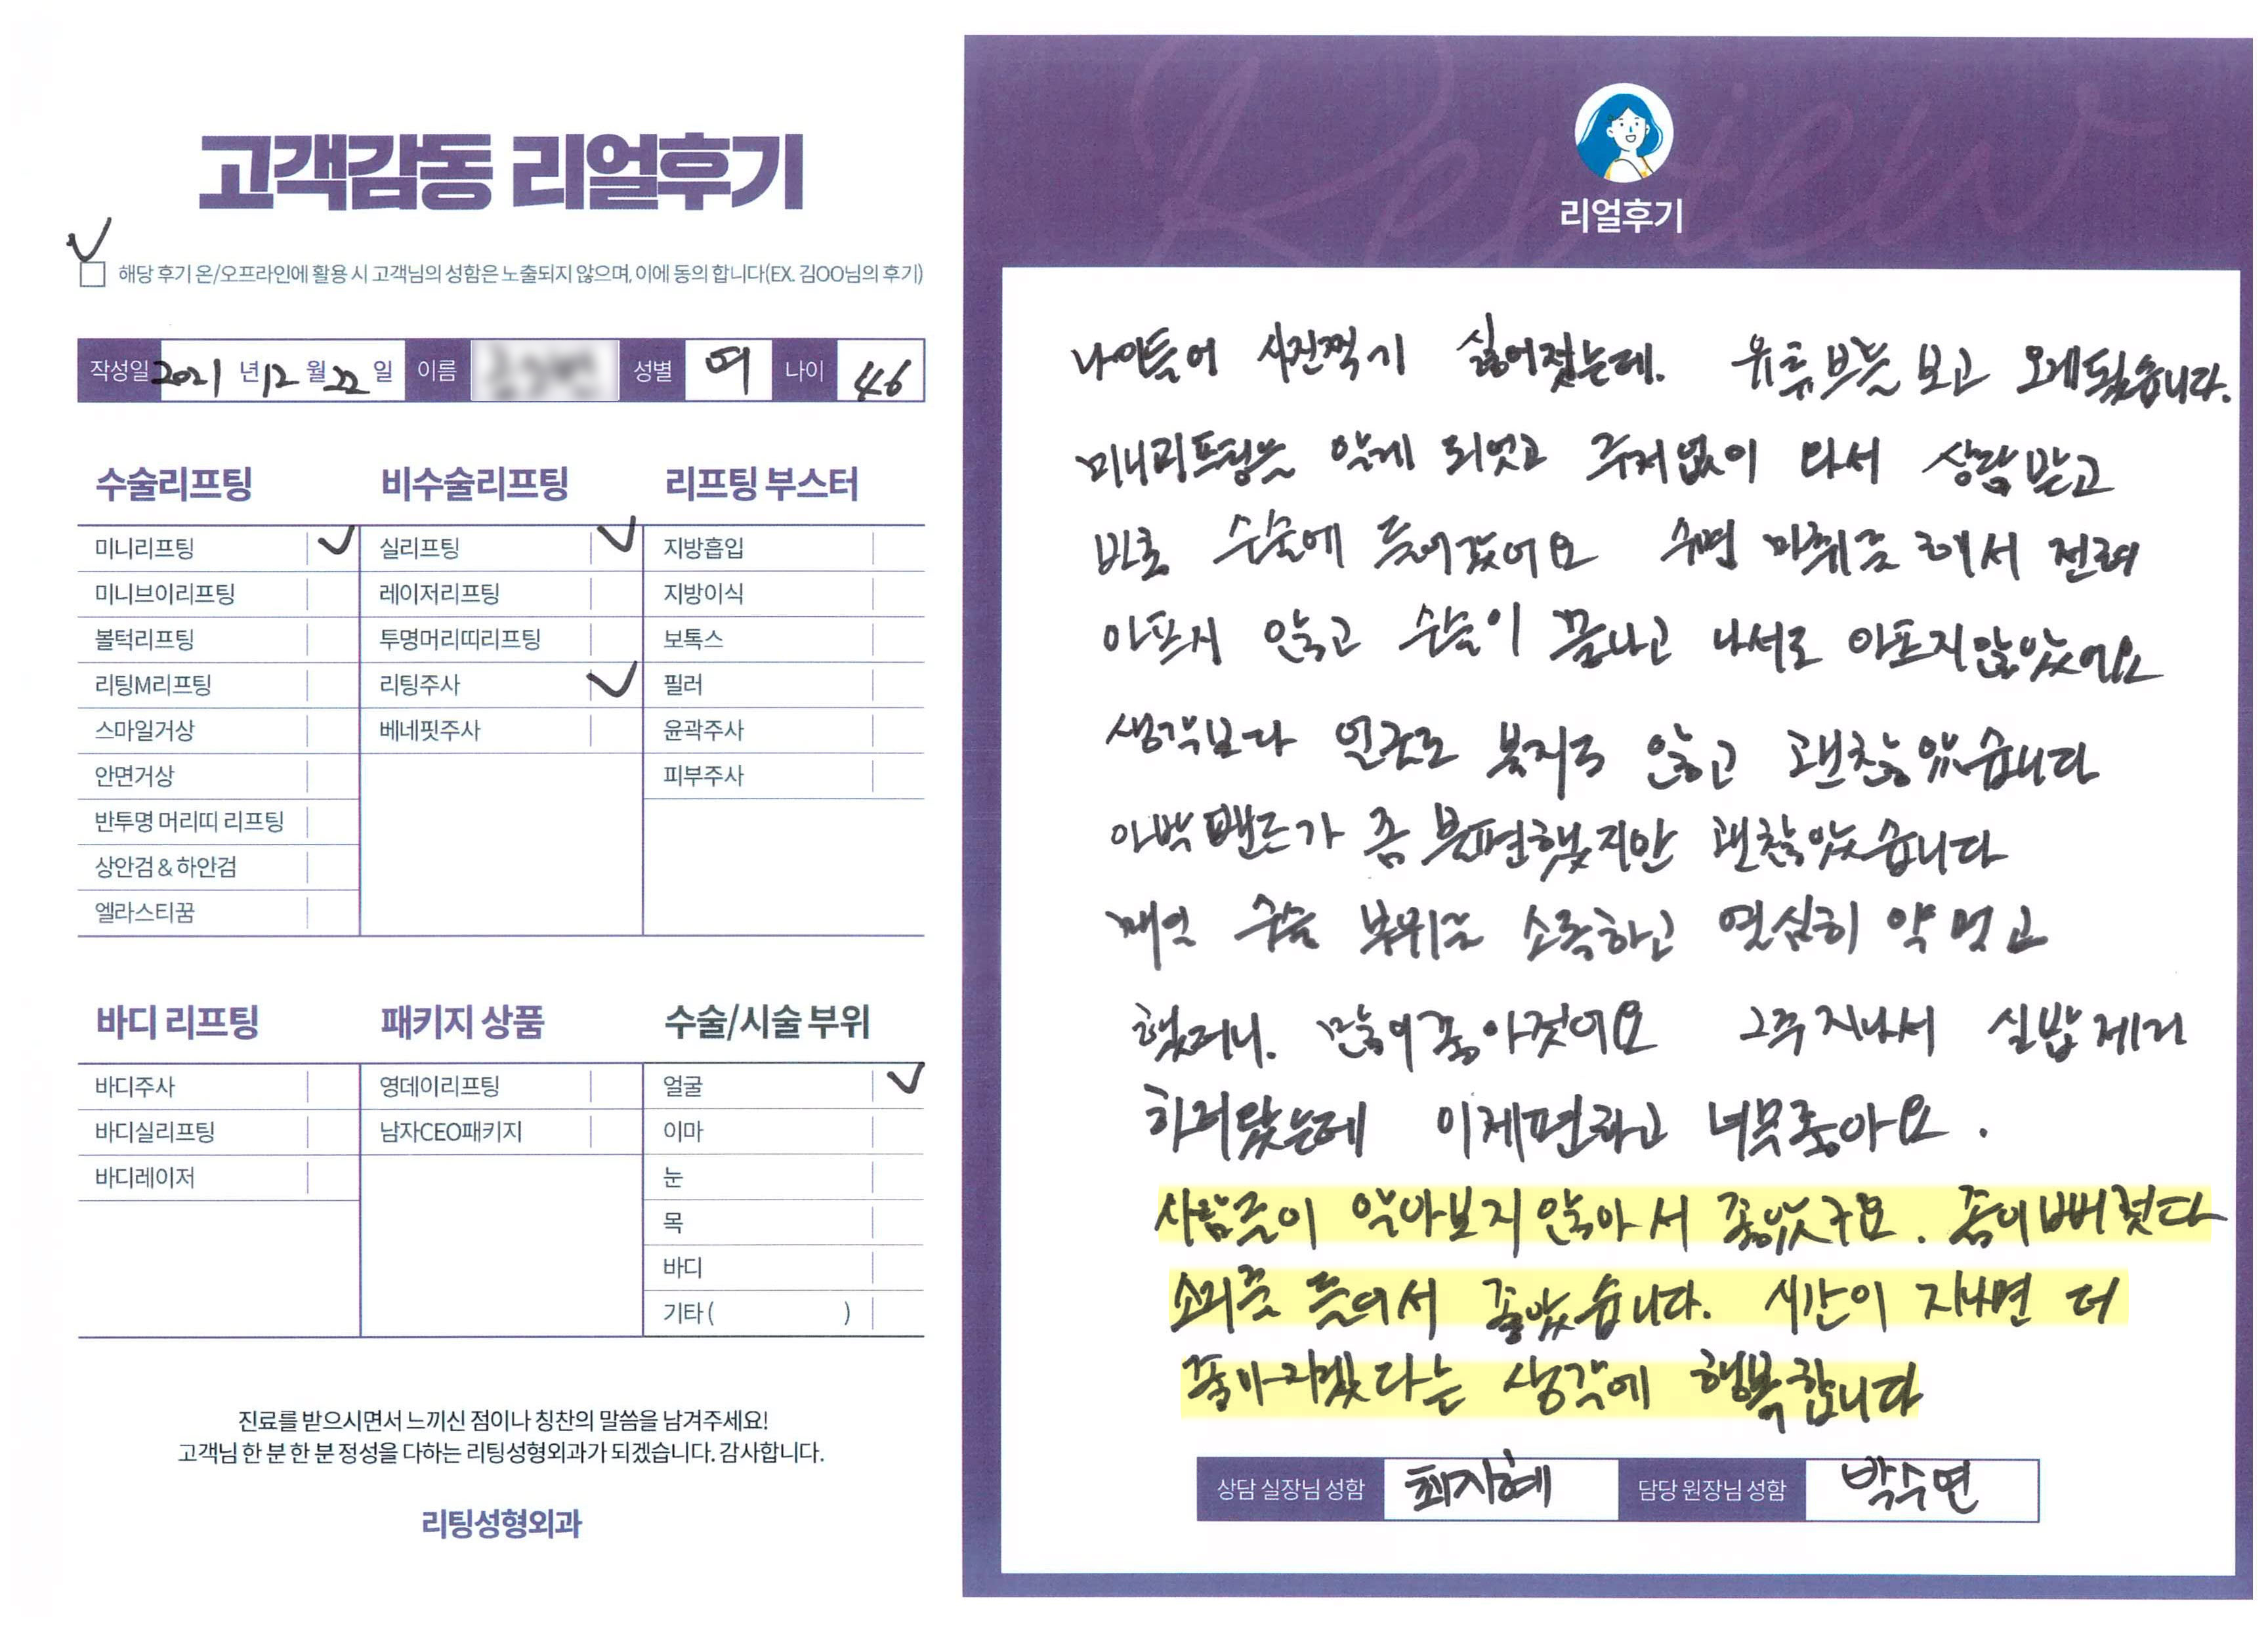 고객감동 리얼후기
해당 후기 온/오프라인에 활용 시 고객님의 성함은 노출되지 않으며, 이에 동의 합니다(EX. 김OO님의 후기)
작성일 2021 년 12 월 22 일 이름 성별 여 나이 46
수술리프팅 비수술리프팅 리프팅 부스터
미니리프팅 실리프팅 지방흡입
미니브이리프팅 레이저리프팅 지방이식
볼턱리프팅 투명머리띠리프팅 보톡스
리팅M리프팅 리팅주사 필러
스마일거상 베네핏주사 윤곽주사
안면거상 피부주사
반투명 머리띠 리프팅
상안검 & 하안검
엘라스티꿈
바디 리프팅 패키지 상품 수술/시술 부위
바디주사 영데이리프팅 얼굴
바디실리프팅 남자CEO패키지 이마
바디레이저 눈
목
바디
기타 ( )
진료를 받으시면서 느끼신 점이나 칭찬의 말씀을 남겨주세요!
고객님 한 분 한 분 정성을 다하는 리팅성형외과가 되겠습니다. 감사합니다.
리팅성형외과
Review
리얼후기
나이들어 사진찍기 싫어졌는데. 유튜브를 보고 오게됬습니다.
미니리프팅을 알게 되었고 주저없이 와서 상담받고
바로 수술에 들어갔어요 수면 마취를 해서 전혀
아프지 않고 수술이 끝나고 나서도 아프지않았어요
생각보다 얼굴도 붓지도 않고 괜찮았습니다
압박밴드가 좀 불편했지만 괜찮았습니다
매일 수술 부위를 소독하고 열심히 약 먹고
했더니. 많이좋아젓어요 2주 지나서 실밥제거
하러왔는데 이제편하고 너무좋아요.
사람들이 알아보지않아서 좋았구요. 좀이뻐젓다
소리를 들어서 좋았습니다. 시간이 지나면 더
좋아지겠다는 생각에 행복합니다
상담 실장님 성함 최지혜 담당 원장님 성함 박수연